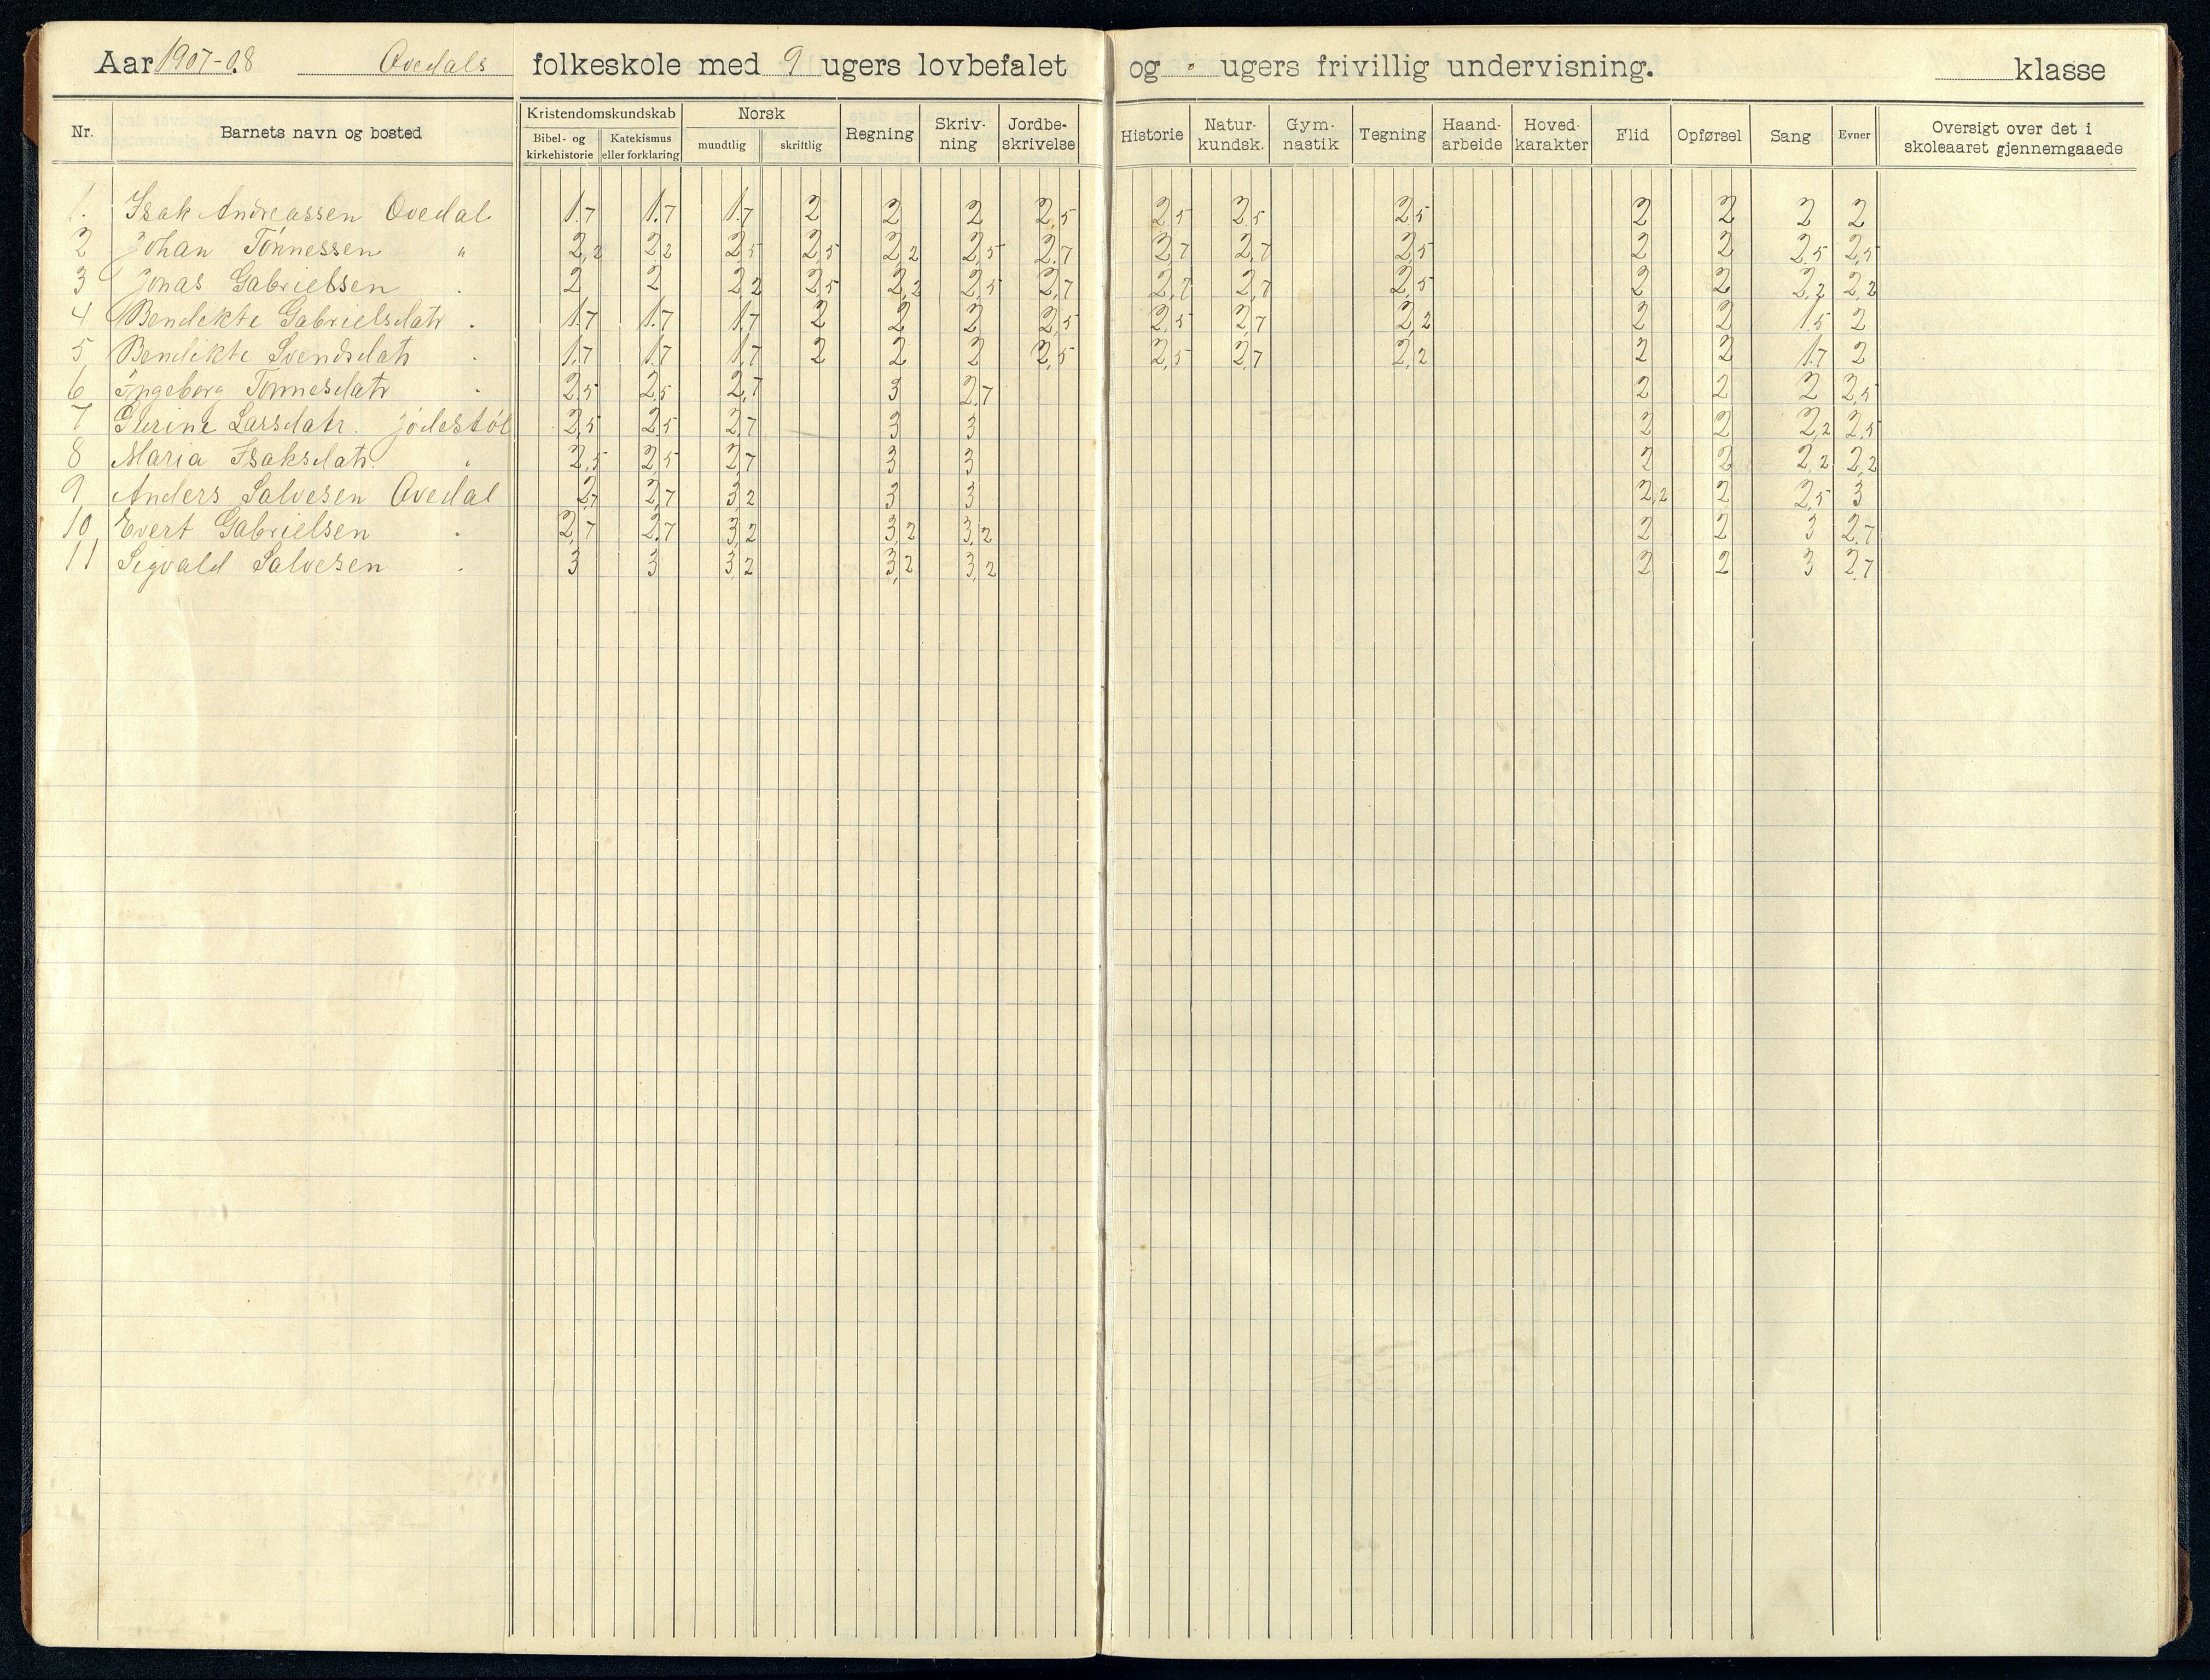 Aar 1907-08 Ovedals folkeskole med 9 ugers lovbefalet og " ugers frivillig undervisning. klasse
Nr. Barnets navn og bosted Kristendomskundskab Bibel- og kirkehistorie Katekismus eller forklaring Norsk mundtlig skriftlig Regning Skriv-ning Jordbe-skrivelse Historie Natur-kundsk. Gym-nastik Tegning Haand-arbeide Hoved-karakter Flid Opførsel Sang Evner Oversigt over det i skoleaaret gjennemgaaede
1. Isak Andreassen Ovedal 1.7 1.7 1.7 2 2 2 2,5 2,5 2,5 2,5 2 2 2 2
2 Johan Tönnessen " 2,2 2,2 2,5 2,5 2,2 2,5 2,7 2,7 2,7 2,5 2 2 2,5 2,5
3 Jonas Gabrielsen " 2 2 2,2 2,5 2,2 2,5 2,7 2,7 2,7 2,5 2 2 2,2 2,2
4 Bendikte Gabrielsdatr " 1.7 1.7 1,7 2 2 2 2,5 2,5 2,7 2,2 2 2 1.5 2
5 Bendikte Svendsdatr " 1,7 1.7 1,7 2 2 2 2,5 2,5 2,7 2,2 2 2 1.7 2
6 Ingeborg Tönnesdatr " 2,5 2,5 2,7 3 2,7 2 2 2 2,5
7 Gurine Larsdatr. Jödestöl 2,5 2,5 2,7 3 3 2 2 2,2 2,5
8 Maria Isaksdatr. " 2,5 2,5 2,7 3 3 2 2 2,2 2,2
9 Anders Salvesen Ovedal 2,7 2,7 3,2 3 3 2,2 2 2,5 3
10 Evert Gabrielsen " 2,7 2.7 3,2 3,2 3,2 2 2 3 2,7
11 Sigvald Salvesen " 3 3 3,2 3,2 3,2 2 2 3 2,7